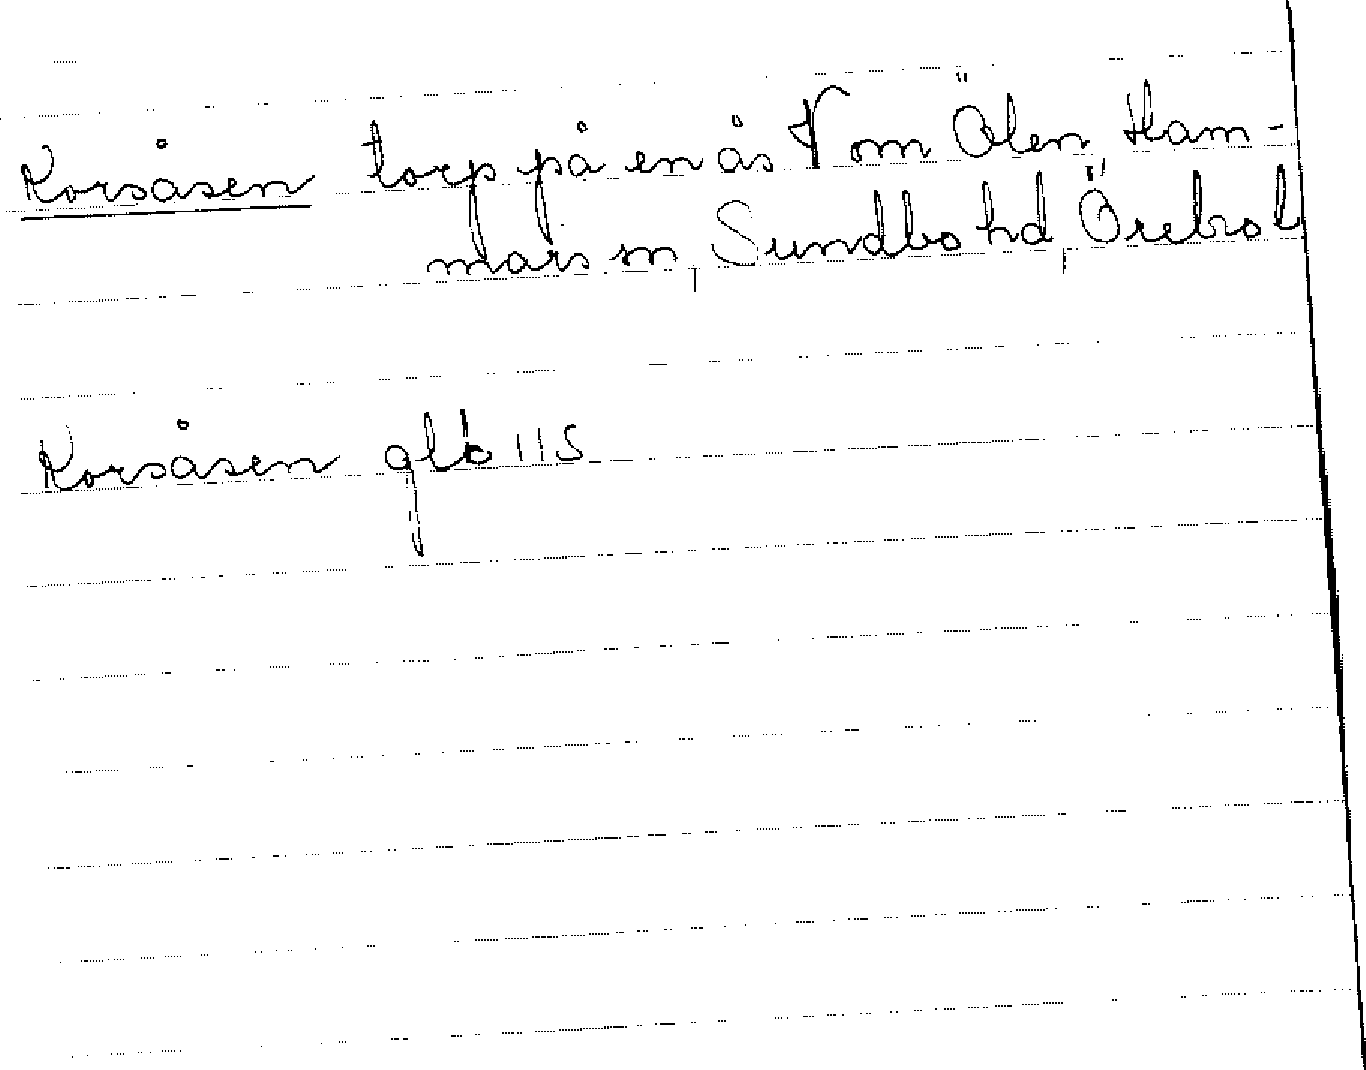 Korsåsen torp på en ås V om Ölen, Ham-
mars sn, Sundbo hd, Örebro l
Korsåsen glb 115